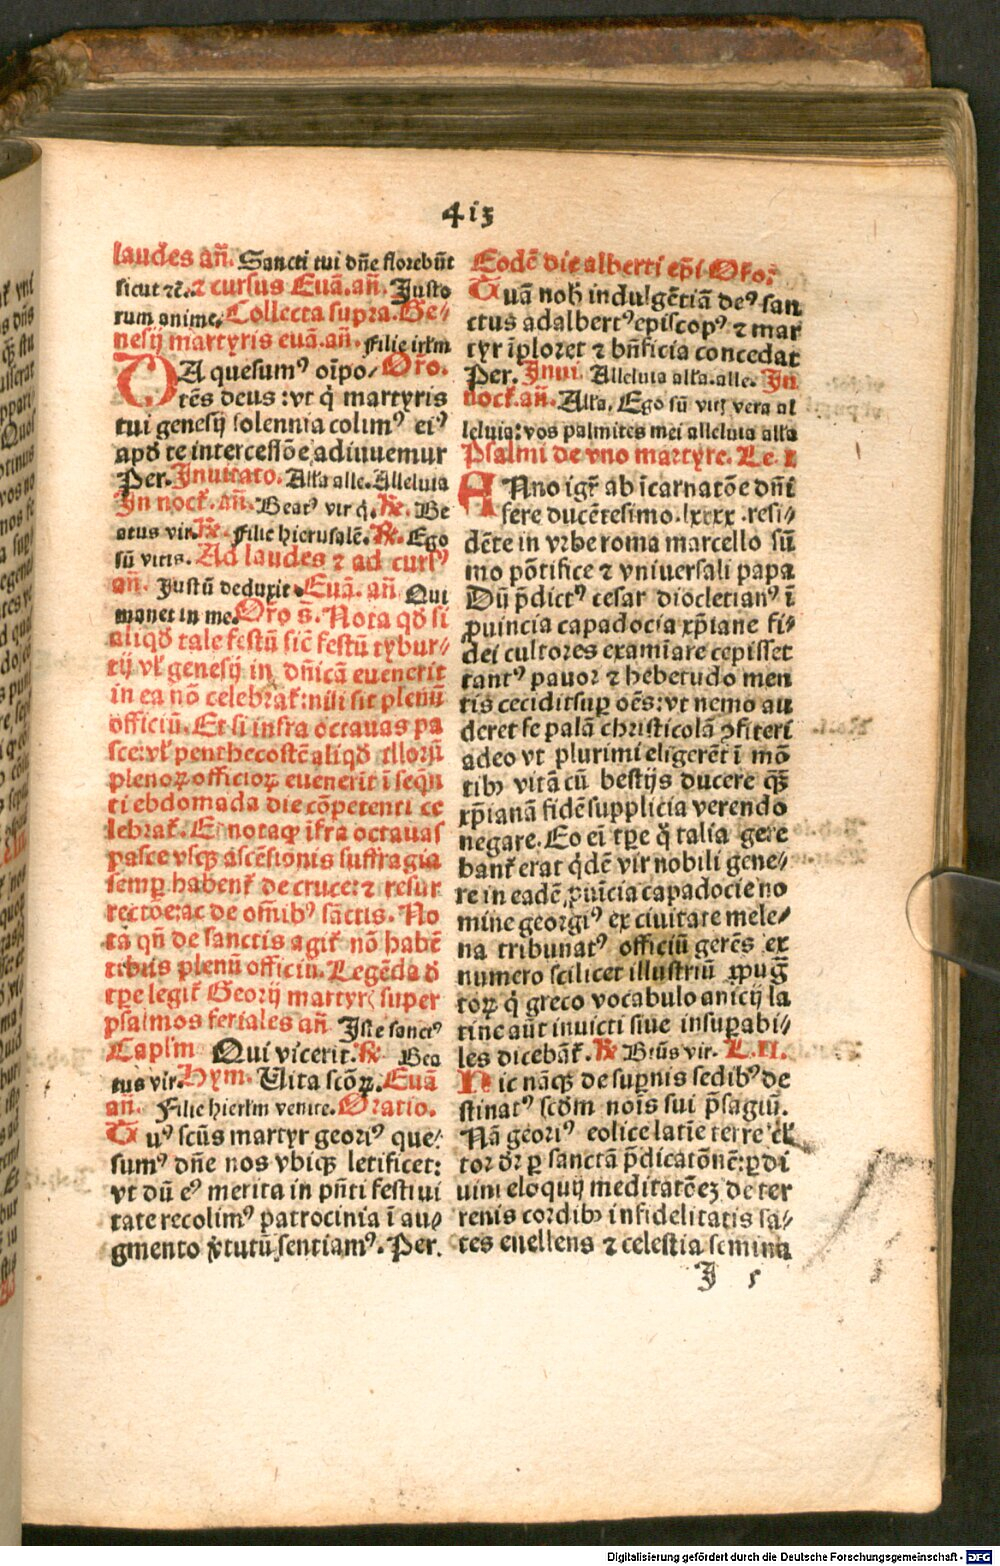 413
laudes añ. Sancti tui dñe florebũt
sicut ⁊c̃. ⁊ cursus Euã. añ. Justo
rum anime. Collecta supra. Ge⸗
nesij martyris euã. añ. Filie irl̃m
DA quesumꝰ oĩpo⸗ Oro.
tẽs deus: vt q̃ martyris
tui genesij solennia colimꝰ eiꝰ
apđ te intercessõe adiuuemur
Per. Inuitato. All'a alle. Alleluia
In noct̃. añ. Beatꝰ vir q̃. ℟. Be
atus vir. ℟. Filie hierusalẽ. ℟. Ego
sũ vitis. Ad laudes ⁊ ad cursꝰ
añ. Justũ deduxit. Euã. añ Qui
manet in me. Oro s̃. Nota qđ si
aliqđ tale festũ sic̃ festũ tybur⸗
tij vl' genesij in dñicã euenerit
in ea nõ celebrat̃: nisi sit plenũ
officiũ. Et si infra octauas pa
sce: vl' penthecostẽ aliqđ illorũ
plenoꝝ officioꝝ euenerit ĩ seqñ
ti ebdomada die cõpetenti ce
lebrat̃. Et notaqꝫ ĩfra octauas
pasce vsqꝫ ascẽsionis suffragia
semꝑ habent̃ de cruce: ⁊ resur
rectõe: ac de om̃ibꝰ sãctis. No
ta qñ de sanctis agit̃ nõ habẽ
tibus plenũ officiũ. Legẽda đ
tꝑe legit̃ Georij martyr̃ super
psalmos feriales añ Iste sanctꝰ
Capl'm Qui vicerit. ℟ Bea
tus vir. Hym. Vita scõꝝ. Euã
añ. Filie hierl'm venite. Oratio.
Tuꝰ scũs martyr georiꝰ que⸗
sumꝰ dñe nos vbiqꝫ letificet:
vt dũ eꝰ merita in pñti festiui
tate recolimꝰ patrocinia ĩ au⸗
gmento v̾tutũ sentiamꝰ. Per.
Eodẽ die alberti ep̃i Oro.
Tuã nob̃ indulgẽtiã deꝰ san
ctus adalbertꝰ episcopꝰ ⁊ mar
tyr ĩploret ⁊ bñficia concedat
Per. Inui. Alleluia all'a. alle. In
noct̃. añ. All'a, Ego sũ vitꝭ vera al
leluia: vos palmites mei alleluia all'a
Psalmi de vno martyre. Le. 1
ANno igr̃ ab ĩcarnatõe dñi
fere ducẽtesimo. lxxxx. resi⸗
dẽte in vrbe roma marcello sũ
mo põtifice ⁊ vniuersali papa
Dũ p̃dictꝰ cesar diocletianꝰ ĩ
ꝓuincia capadocia xp̃iane fi⸗
dei cultores examĩare cepisset
tantꝰ pauor ⁊ hebetudo men
tis ceciditsuꝑ oẽs: vt nemo au
deret se palã christicolã ꝯfiteri
adeo vt plurimi eligerẽt ĩ mõ
tibꝫ vitã cũ bestijs ducere qꝫ̃
xp̃ianã fidẽ supplicia verendo
negare. Eo eĩ tꝑe q̃ talia gere
bant̃ erat qđẽ vir nobili gene⸗
re in eadẽ ꝓuĩcia capadocie no
mine georgiꝰ ex ciuitate mele⸗
na tribunatꝰ officiũ gerẽs ex
numero scilicet illustriũ ꝓpug̃
toꝝ q̃ greco vocabulo anicij la
tine aũt inuicti siue insuꝑabi⸗
les dicebãt̃. ℟ Btũs vir. L. II.
Hic nãqꝫ de suꝑnis sedibꝰ de
stinatꝰ scđm noĩs sui p̃sagiũ.
Nã georiꝰ eolice latĩe terre cl'
tor đr ꝑ sanctã p̃dicatõnẽ: ꝑ di
uini eloquij meditatõeꝫ de ter
renis cordibꝫ infidelitatis sa⸗
tes euellens ⁊ celestia semina
J 5